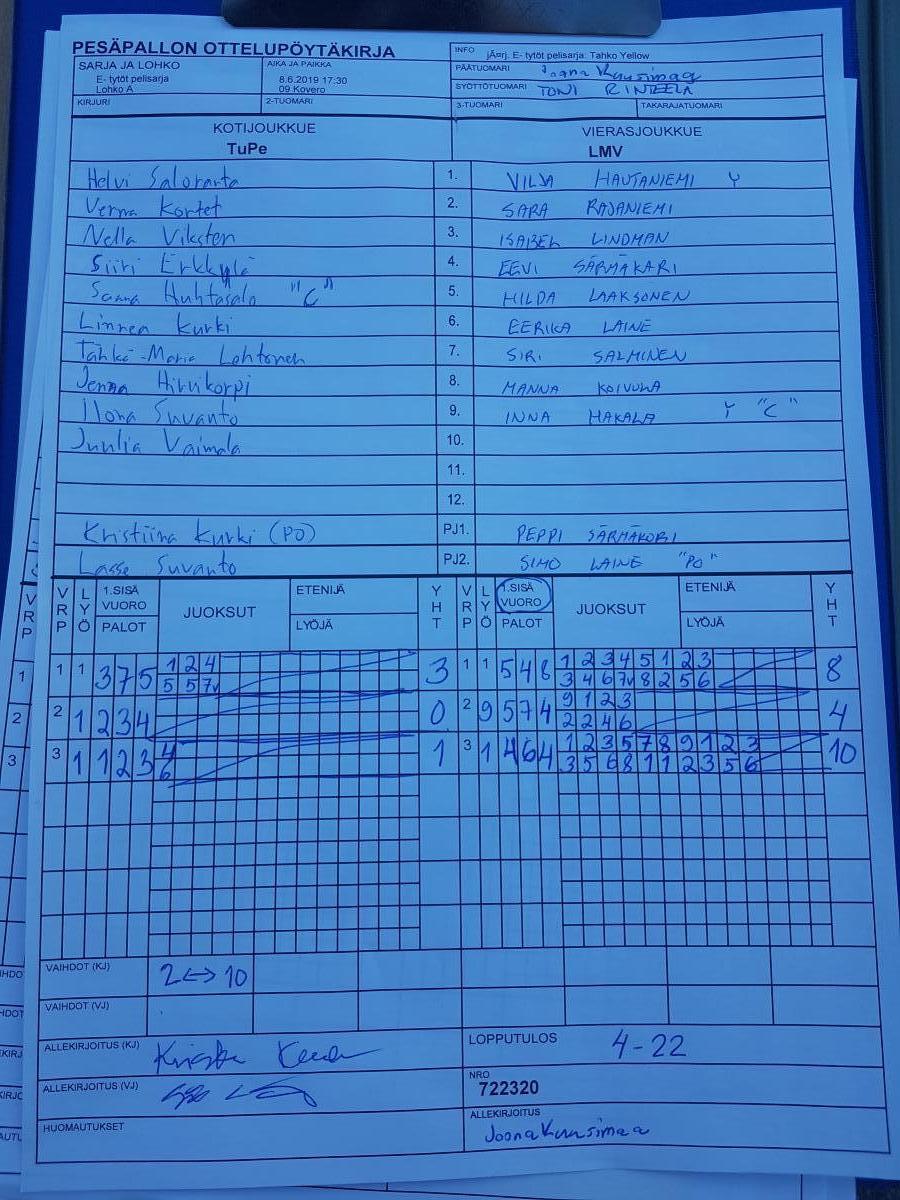 PESÄPALLON OTTELUPÖYTÄKIRJA
INFO jÃ¤rj. E- tytöt pelisarja: Tahko Yellow
SARJA JA LOHKO
E- tytöt pelisarja
Lohko A
AIKA JA PAIKKA
8.6.2019 17:30
09 Kovero
PÄÄTUOMARI Joona Kuusimaa
SYÖTTÖTUOMARI TONI RINTEELA
KIRJURI 2-TUOMARI 3-TUOMARI TAKARAJATUOMARI
KOTIJOUKKUE VIERASJOUKKUE
TuPe LMV
Helvi Saloranta 1. VILJA HAUTANIEMI Y
Verna Kortet 2. SARA RAJANIEMI
Nella Viksten 3. ISABEL LINDMAN
Siiri Erkkylä 4. EEVI SÄRMÄKARI
Saana Huhtasalo "C" 5. HILDA LAAKSONEN
Linnea Kurki 6. EERIKA LAINE
Tähkä-Maria Lehtonen 7. SIRI SALMINEN
Jenna Hirvikorpi 8. MANNA KOIVULA
Ilona Suvanto 9. INNA MAKALA Y "C"
Juulia Vaimala 10.
11.
12.
Kristiina Kurki (PO) PJ1. PEPPI SÄRMÄKORI
Lasse Suvanto PJ2. SIMO LAINE "PO"
VRP LYÖ 1.SISÄ VUORO PALOT JUOKSUT ETENIJÄ LYÖJÄ YHT VRP LYÖ 1.SISÄ VUORO PALOT JUOKSUT ETENIJÄ LYÖJÄ YHT
1 1 375 1 2 4 3 1 1 548 1 2 3 4 5 1 2 3 8
5 5 7v 3 4 6 7v 8 2 5 6
2 1 234 0 2 9 574 9 1 2 3 4
2 2 4 6
3 1 123 4 1 3 1 464 1 2 3 5 7 8 9 1 2 3 10
6 3 5 6 8 1 1 2 3 5 6
VAIHDOT (KJ) 2<->10
VAIHDOT (VJ)
ALLEKIRJOITUS (KJ) LOPPUTULOS 4-22
ALLEKIRJOITUS (VJ) NRO
722320
HUOMAUTUKSET ALLEKIRJOITUS
Joona Kuusimaa